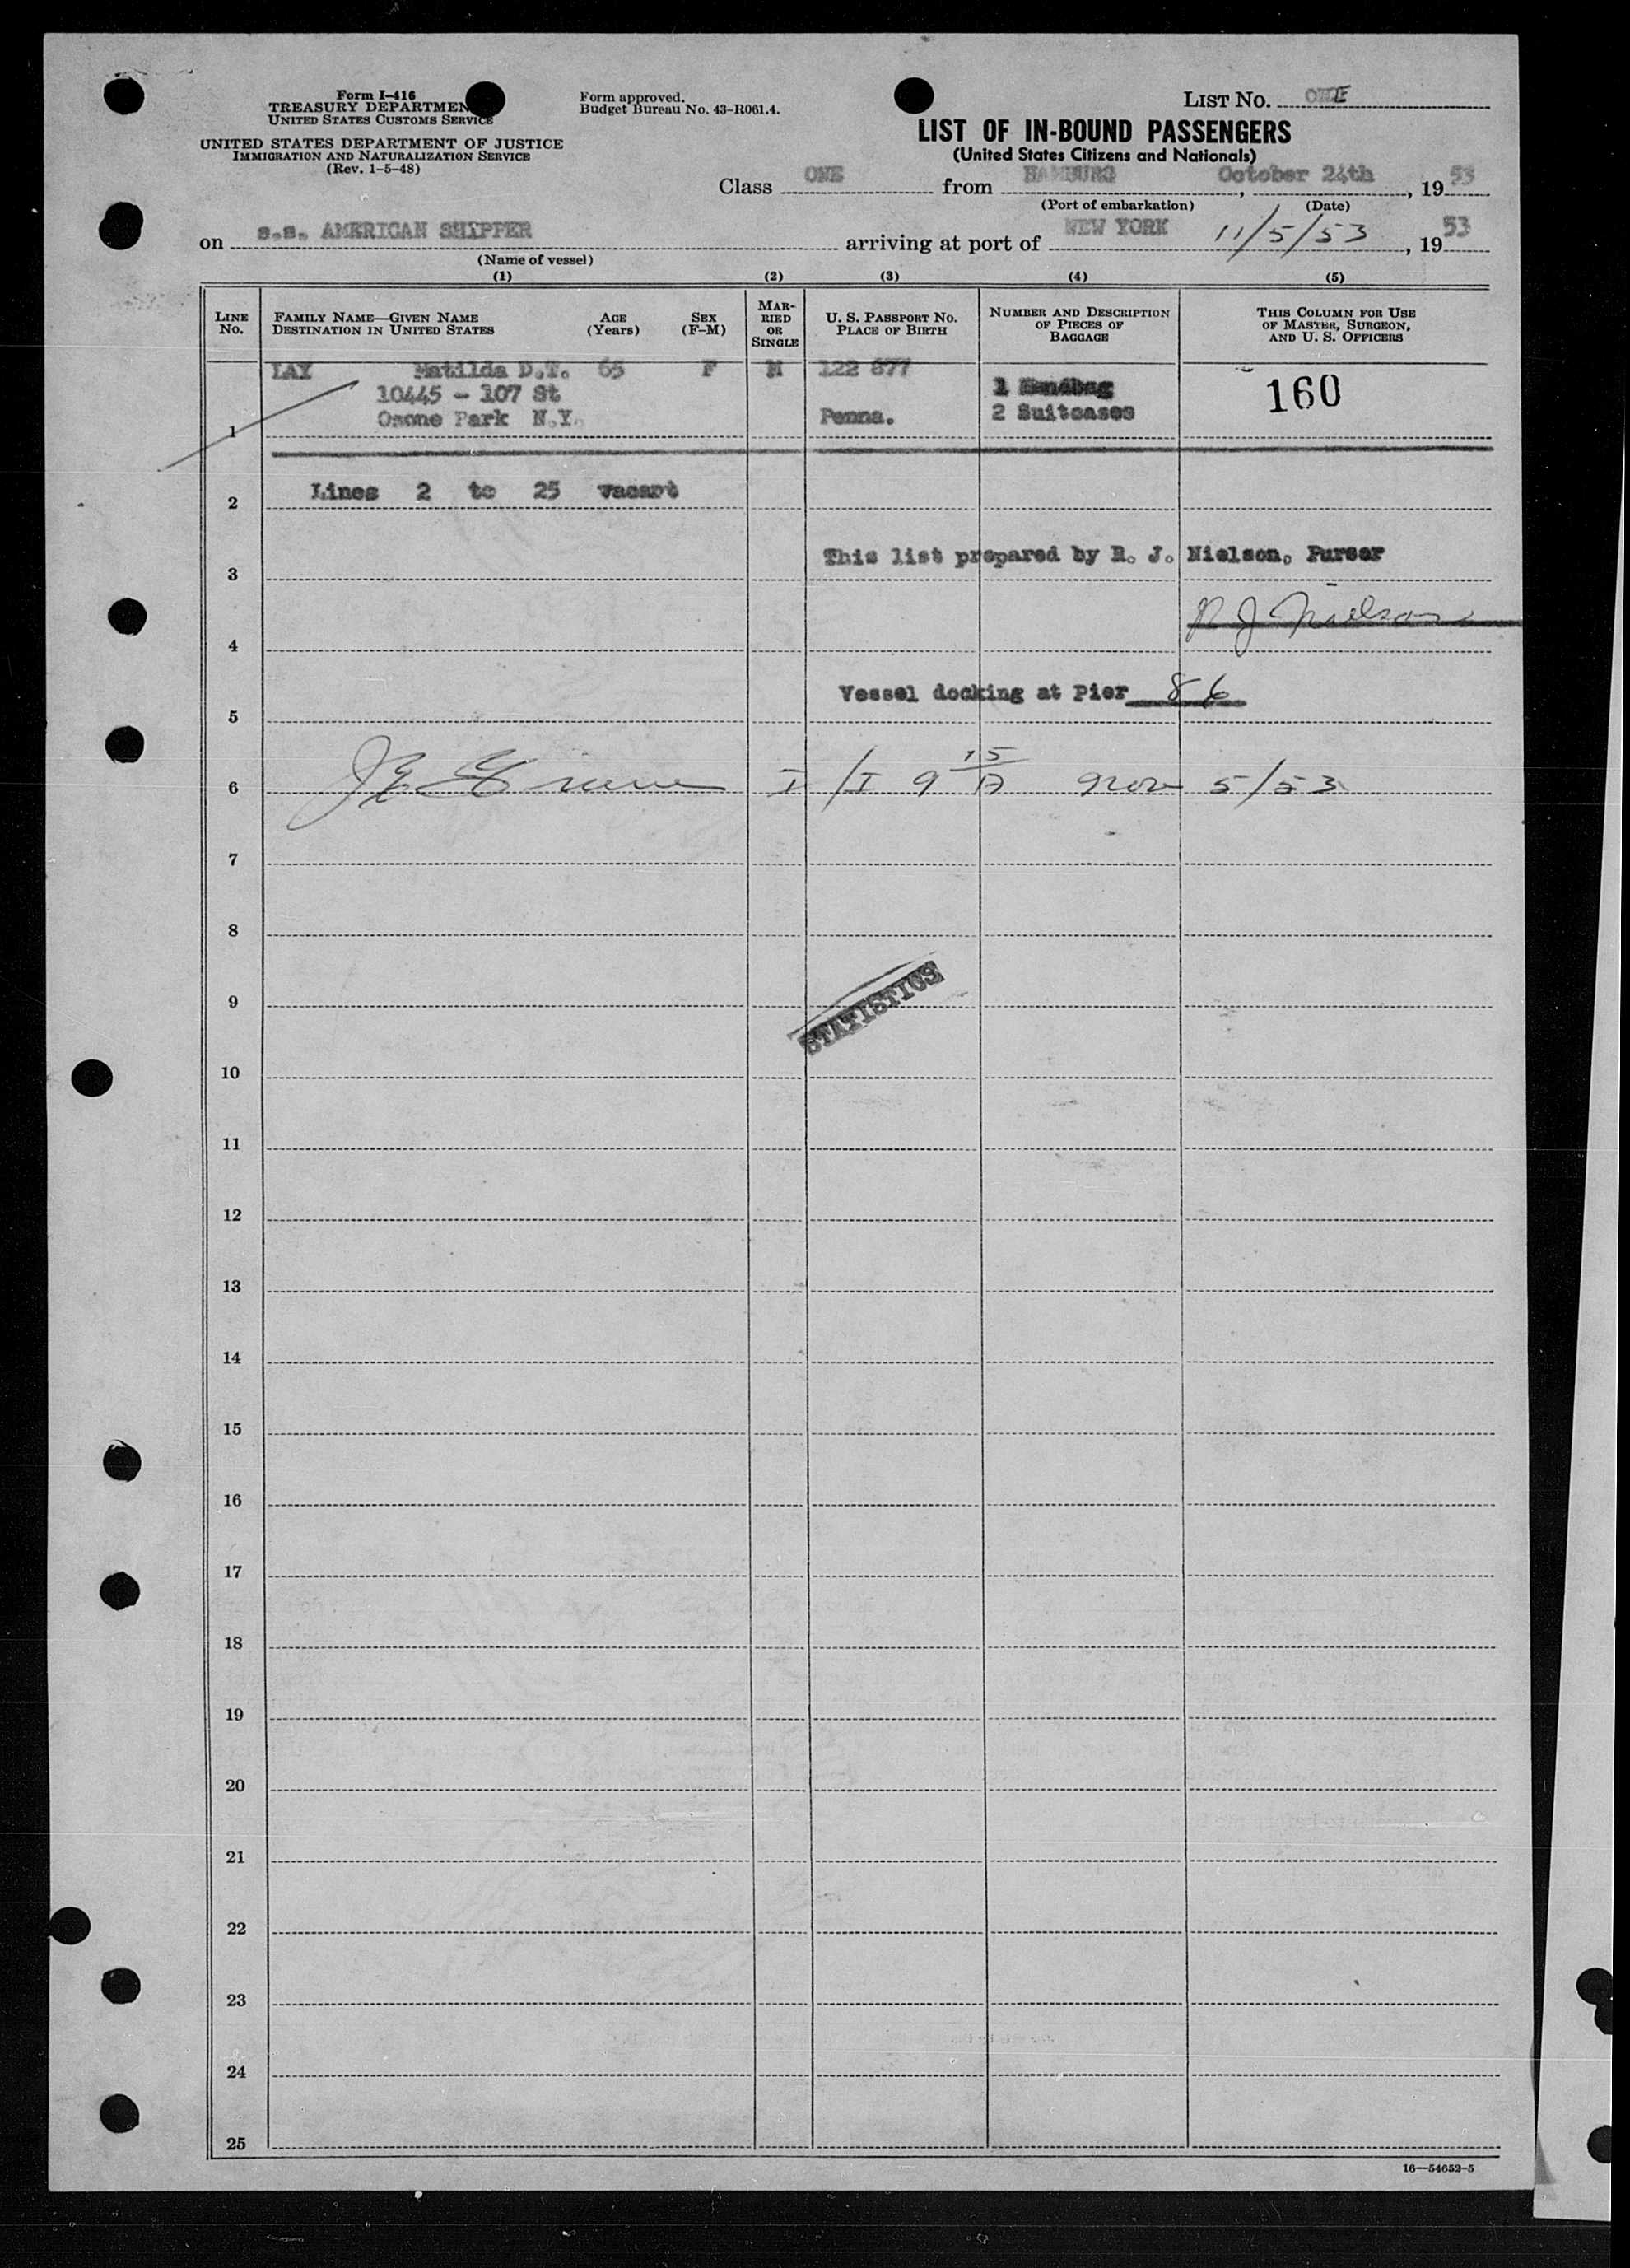 Form I-416
TREASURY DEPARTMENT
UNITED STATES CUSTOMS SERVICE
UNITED STATES DEPARTMENT OF JUSTICE
IMMIGRATION AND NATURALIZATION SERVICE
(Rev. 1-5-48)
Form approved.
Budget Bureau No. 43-R061.4.
LIST NO. ONE
LIST OF IN-BOUND PASSENGERS
(United States Citizens and Nationals)
Class ONE from HAMBURG, October 24th, 1953
(Port of embarkation) (Date)
on s.s. AMERICAN SHIPPER arriving at port of NEW YORK 11/5/53, 1953
(Name of vessel)
(1) (2) (3) (4) (5)
LINE NO. FAMILY NAME—GIVEN NAME DESTINATION IN UNITED STATES AGE (Years) SEX (F-M) MARRIED OR SINGLE U. S. PASSPORT NO. PLACE OF BIRTH NUMBER AND DESCRIPTION OF PIECES OF BAGGAGE THIS COLUMN FOR USE OF MASTER, SURGEON, AND U. S. OFFICERS
LAY Matilda D.T. 65 F M 122 877
10445 - 107 St 1 Handbag 160
1 Ozone Park N.Y. Penna. 2 Suitcases
2 Lines 2 to 25 vacant
3 This list prepared by R. J. Nielson, Purser
4 R J Nielson
5 Vessel docking at Pier 86
6 I/I 9 15 A Nov 5/53
7
8
9 STATISTICS
10
11
12
13
14
15
16
17
18
19
20
21
22
23
24
25
16—54652-5